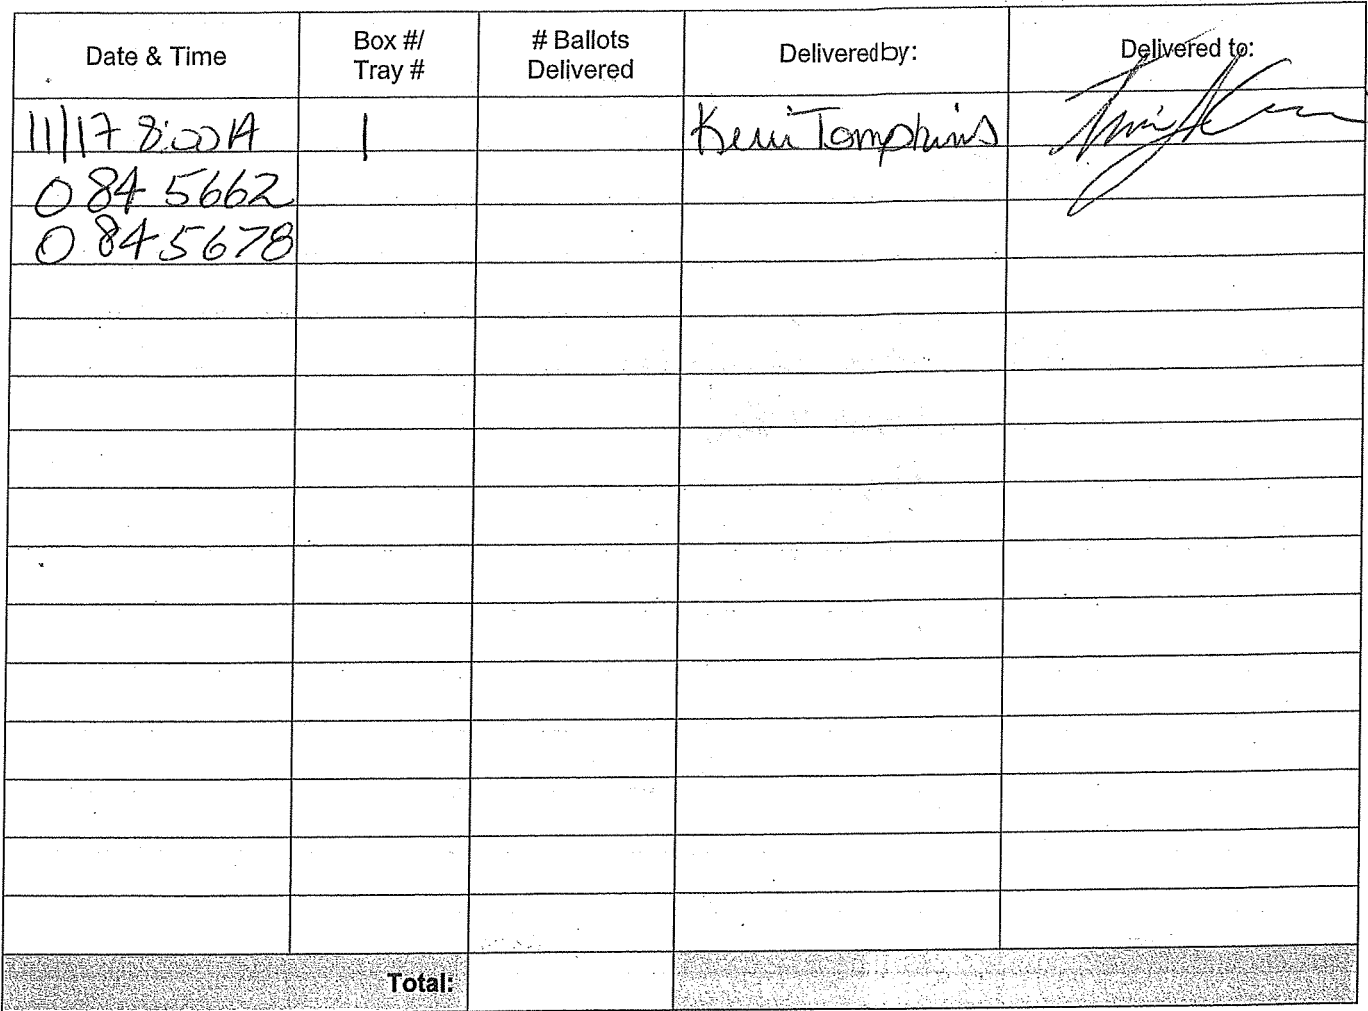 Date & Time
Box #/
Tray #
# Ballots
Delivered
Delivered by:
Delivered to:
11/17 8:00 A
1
Keri Tompkins
0 84 5662
0 84 5678
Total: